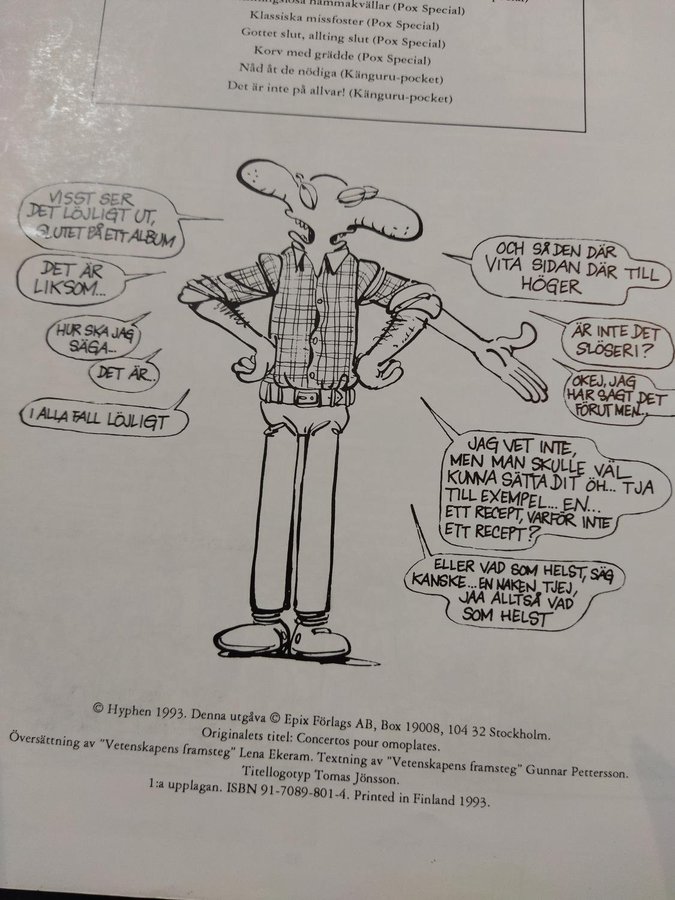 hammakvällar (Pox Special)
Klassiska missfoster (Pox Special)
Gottet slut, allting slut (Pox Special)
Korv med grädde (Pox Special)
Nåd åt de nödiga (Känguru-pocket)
Det är inte på allvar! (Känguru-pocket)
VISST SER
DET LÖJLIGT UT,
SLUTET PÅ ETT ALBUM
DET ÄR
LIKSOM...
HUR SKA JAG
SÄGA...
DET ÄR..
I ALLA FALL LÖJLIGT
OCH SÅ DEN DÄR
VITA SIDAN DÄR TILL
HÖGER
ÄR INTE DET
SLÖSERI?
OKEJ, JAG
HAR SAGT DET
FÖRUT MEN..
JAG VET INTE,
MEN MAN SKULLE VÄL
KUNNA SÄTTA DIT ÖH... TJA
TILL EXEMPEL... EN...
ETT RECEPT, VARFÖR INTE
ETT RECEPT?
ELLER VAD SOM HELST, SÄG
KANSKE... EN NAKEN TJEJ,
JAA ALLTSÅ VAD
SOM HELST
© Hyphen 1993. Denna utgåva © Epix Förlags AB, Box 19008, 104 32 Stockholm.
Originalets titel: Concertos pour omoplates.
Översättning av "Vetenskapens framsteg" Lena Ekeram. Textning av "Vetenskapens framsteg" Gunnar Pettersson.
Titellogotyp Tomas Jönsson.
1:a upplagan. ISBN 91-7089-801-4. Printed in Finland 1993.